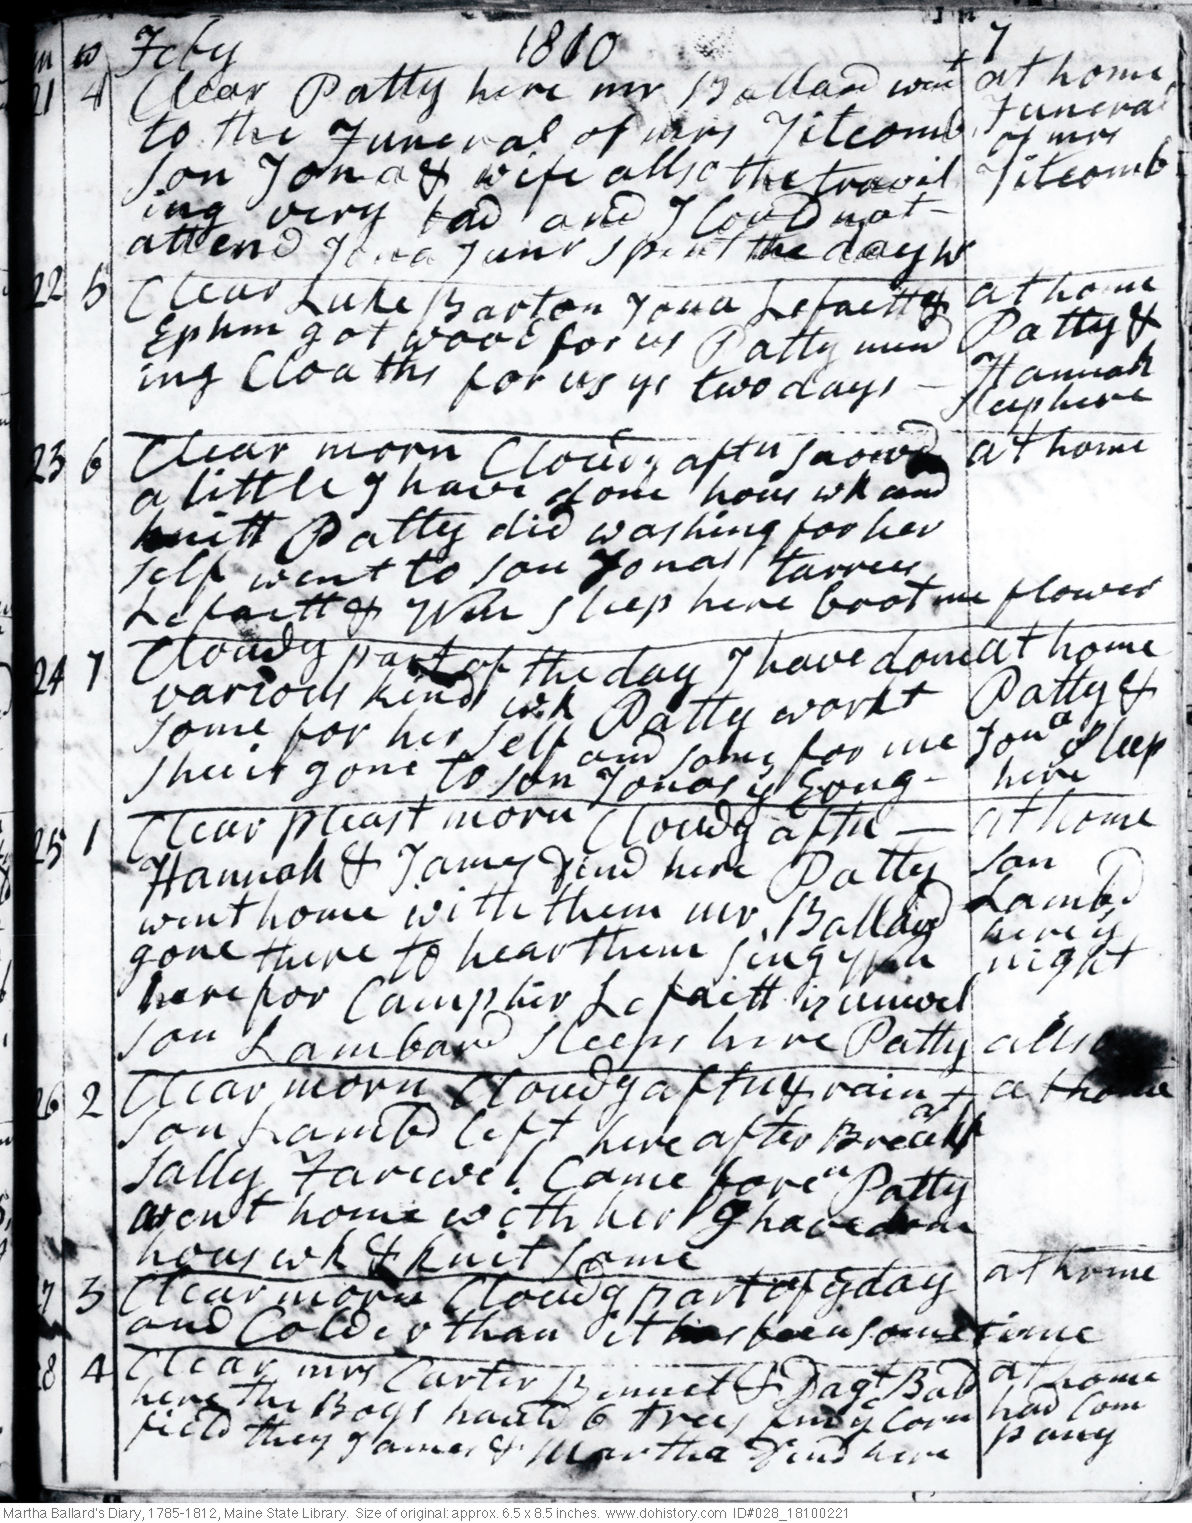 m w Feby 1810 7
21 4 Clear Patty here mr Ballard went at home
to the Funeral of mrs Titcomb Funeral
son Jona & wife allso the travil of mrs
ing very bad and I Could not - Titcomb
attend Jona Junr spent the day
22 5 Clear Luke Barton Jona Lefaett & at home
Ephm got wood for us Patty mend Patty &
ing Cloaths for us ys two days - Hannah
sleep here
23 6 Clear morn Cloudy aftn snowd at home
a little I have done hous wk and
knitt Patty did washing for her
self went to son Jonas tarries
Lefaett & Wm sleep here boot me flower
24 7 Cloudy part of the day I have done at home
various kinds wk Patty workt Patty &
some for her self and some for me Jona sleep
shee is gone to son Jonas ys Eving - here
25 1 Clear pleast morn Cloudy aftn — at home
Hannah & James Dind here Patty son
went home with them mr Ballard Lambd
gone there to hear them sing here ys
here for Campher Lefaett is unwel night
son Lambard sleeps here Patty allso
26 2 Clear morn Cloudy aftn & rain at home
son Lambd left here after Breakft
Sally Farewel Came foren Patty
went home with her I have done
hous wk & knit some
27 3 Clear morn Cloudy part of ys day at home
and Colder than it has been some time
28 4 Clear mrs Carter Bennet & Dagt Bab at home
here the Boys hauld 6 trees from ys Corn had Com
field they James & Martha Dind here pany
Martha Ballard's Diary, 1785-1812, Maine State Library. Size of original: approx. 6.5 x 8.5 inches. www.dohistory.com ID#028_18100221